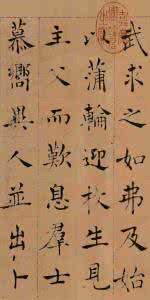 武求之如弗及始
以蒲輪迎枚生見
主父而歎息羣士
慕嚮異人並出卜